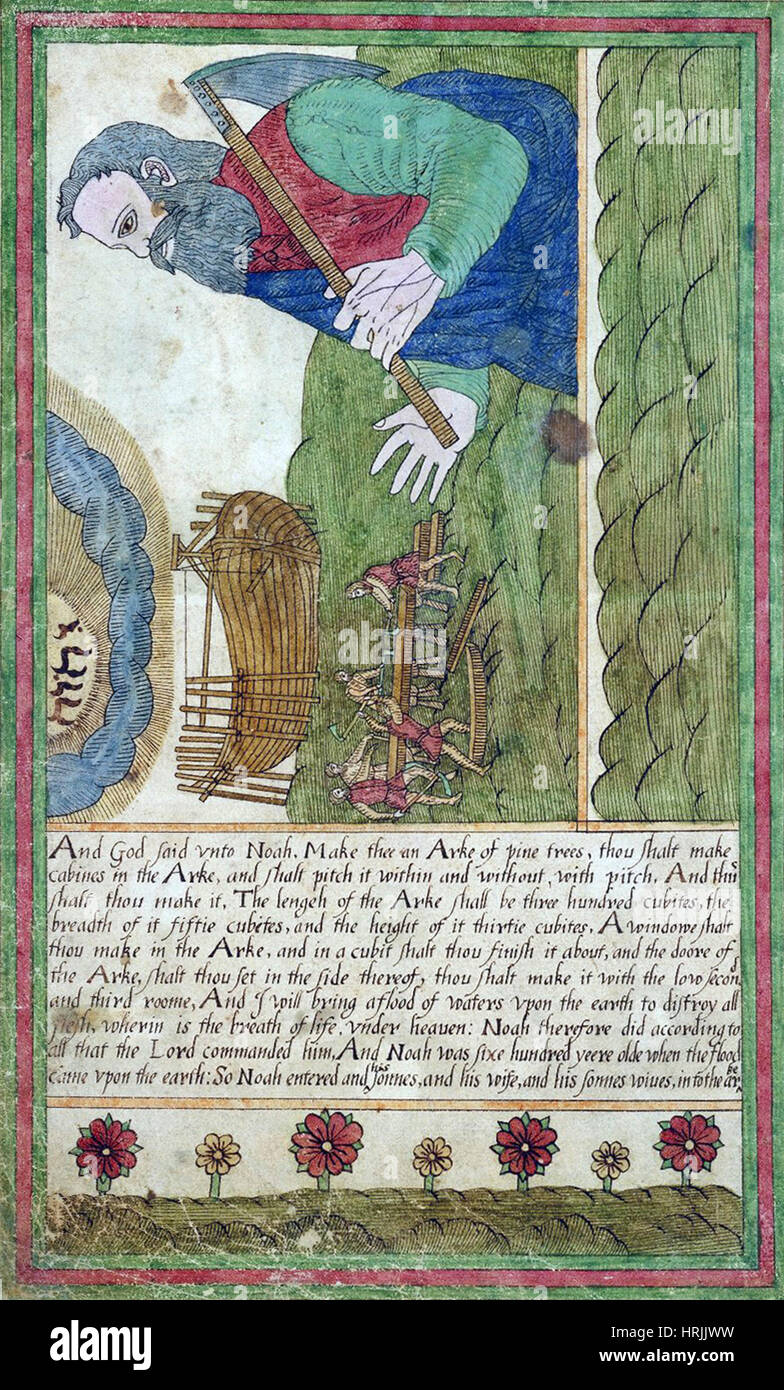 יהוה
And God said vnto Noah, Make thee an Arke of pine trees, thou shalt make
cabines in the Arke, and shalt pitch it within and without, with pitch, And thus
shalt thou make it, The lengeh of the Arke shall be three hundred cubites, the
breadth of it fiftie cubetes, and the height of it thirtie cubites, A windowe shalt
thou make in the Arke, and in a cubit shalt thou finish it about, and the doore of
the Arke, shalt thou set in the side thereof, thou shalt make it with the low second
and third roome, And I will bring a flood of waters vpon the earth to distroy all
flesh, wherin is the breath of life, vnder heauen: Noah therefore did according to
all that the Lord commanded him, And Noah was sixe hundred yeere olde when the flood
came vpon the earth: So Noah entered and his sonnes, and his wife, and his sonnes wiues, into the
alamy
Image ID: HRJJWW
www.alamy.com